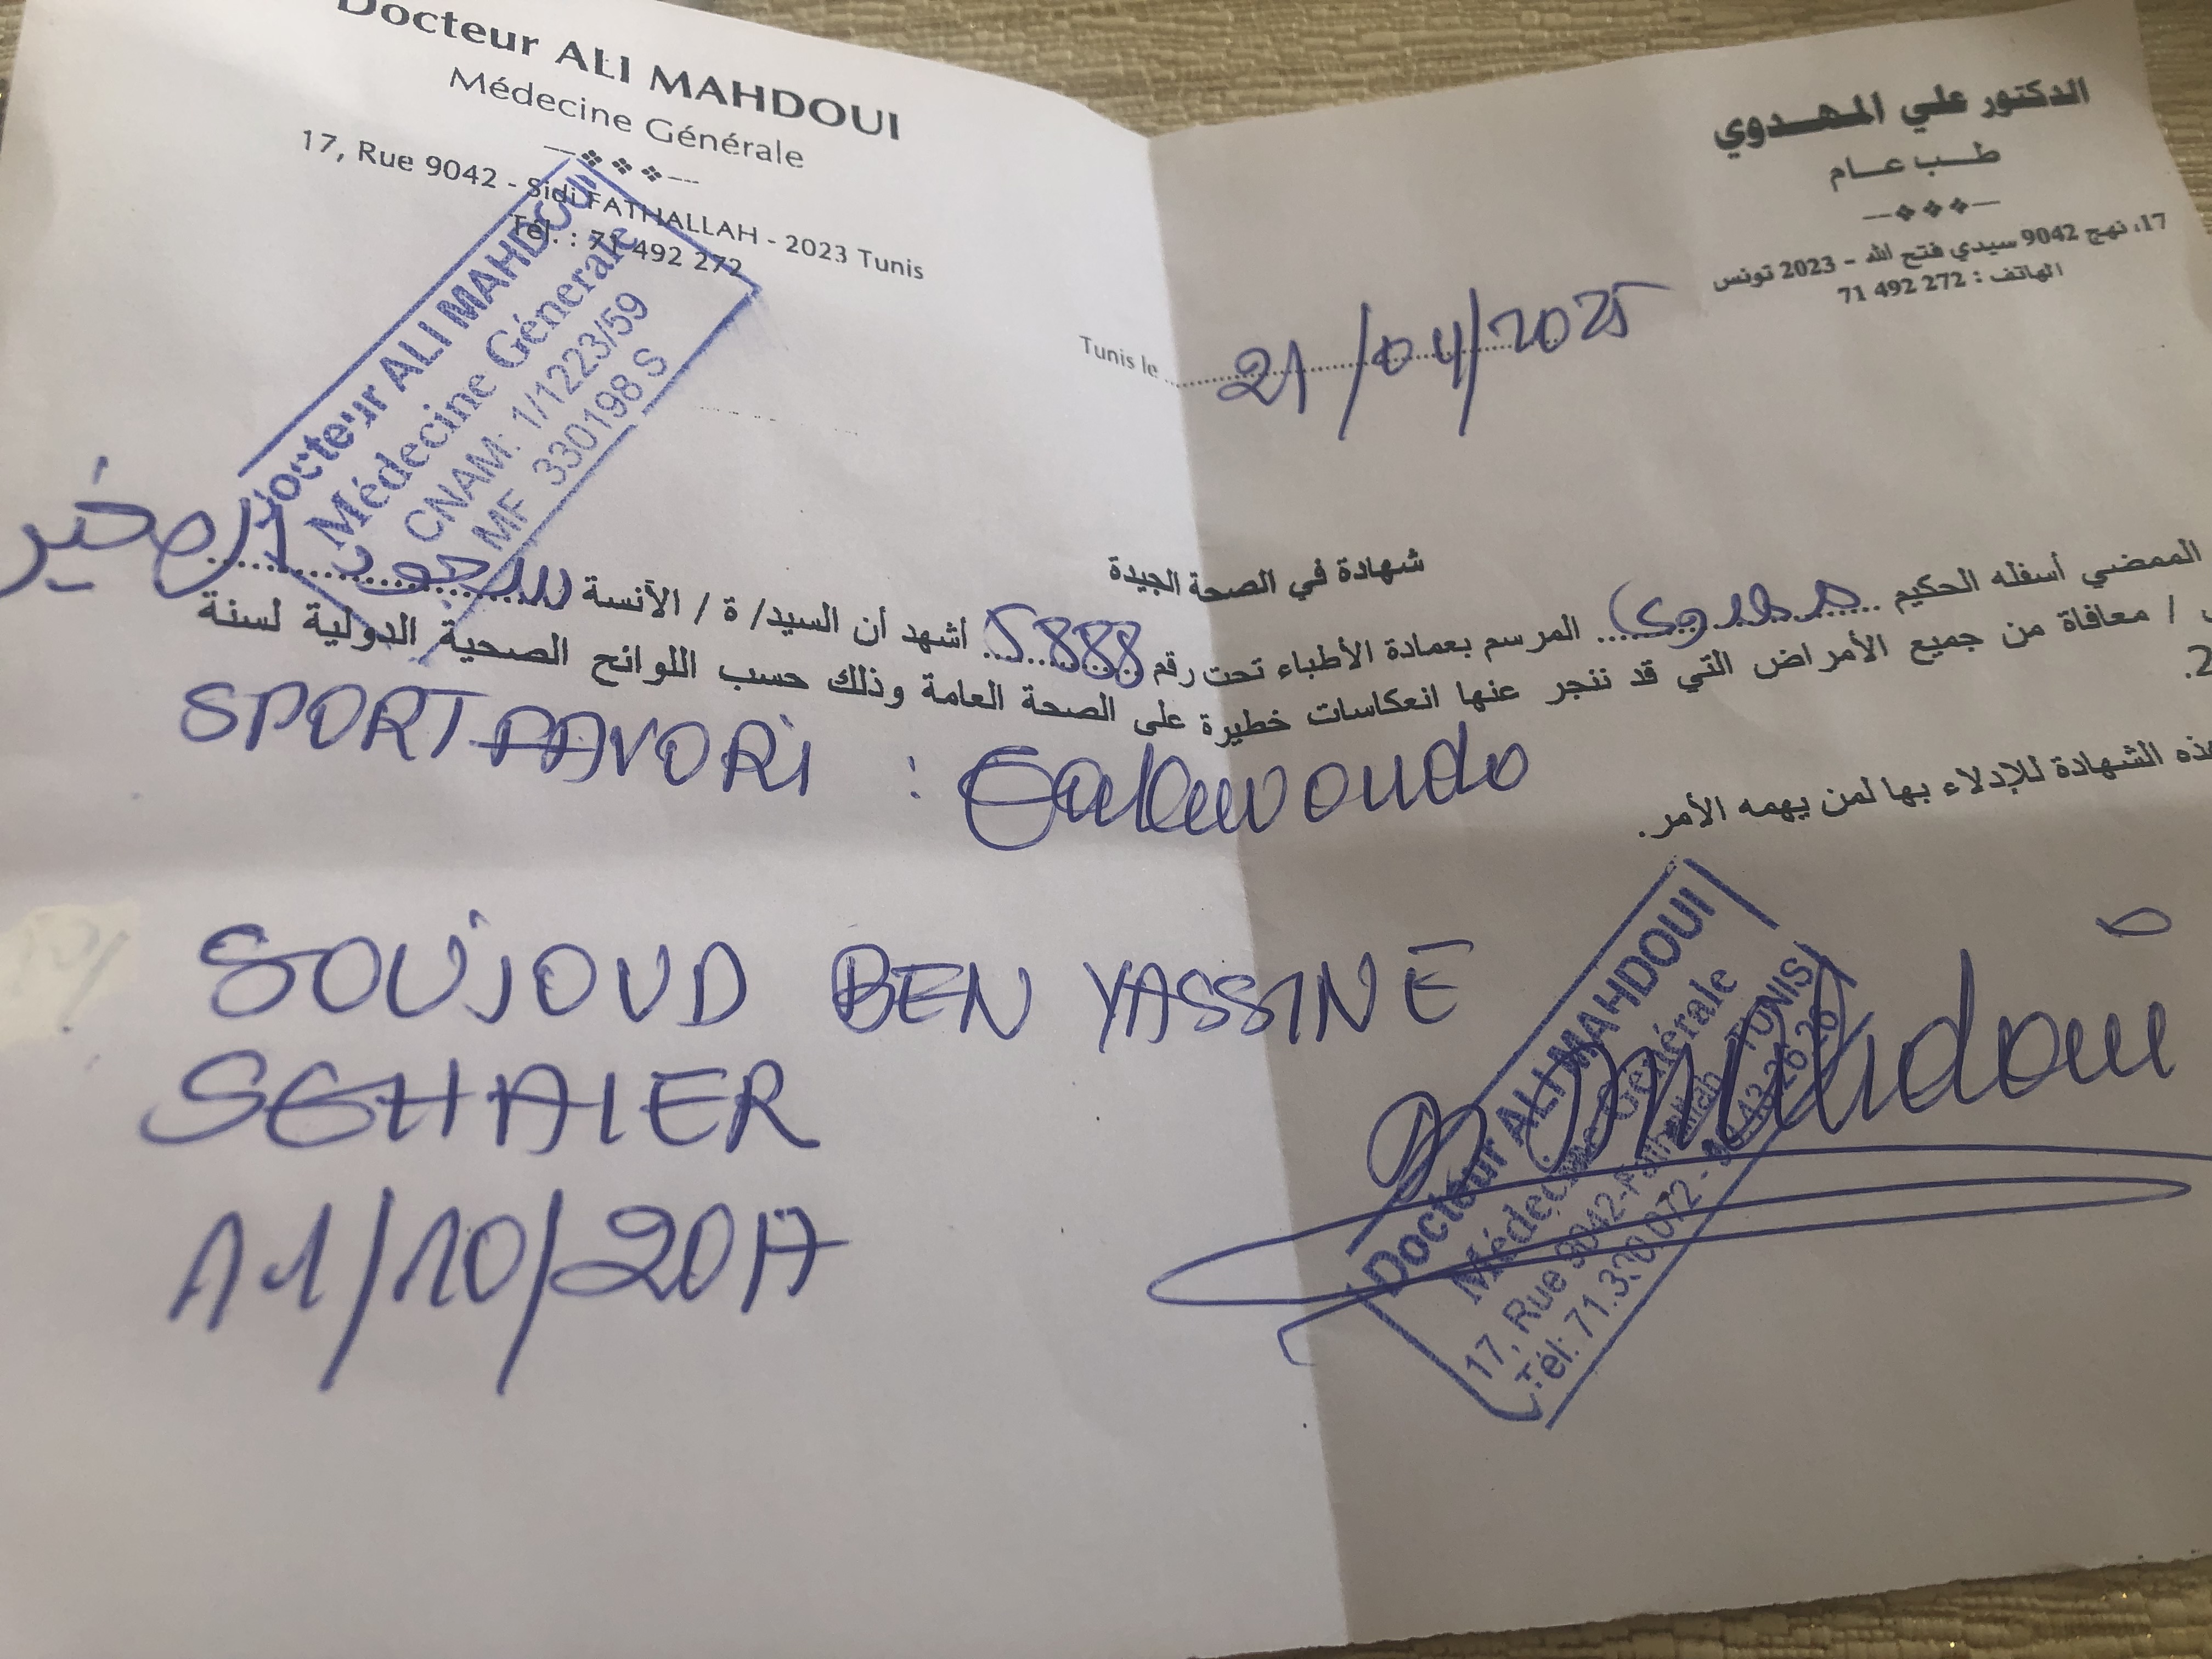 Docteur ALI MAHDOUI
Médecine Générale
17, Rue 9042 - Sidi FATHALLAH - 2023 Tunis
Tél. : 71 492 272
الدكتور علي المهدوي
طب عام
17، نهج 9042 سيدي فتح الله - 2023 تونس
الهاتف : 272 492 71
Docteur ALI MAHDOUI
Médecine Génerale
CNAM: 1/1223/59
MF 330198 S
Tunis le 21/04/2025
شهادة في الصحة الجيدة
الممضي أسفله الحكيم مهدوي المرسم بعمادة الأطباء تحت رقم 5888 أشهد أن السيد/ ة / الآنسة سجود الصخير
/ معافاة من جميع الأمراض التي قد تنجر عنها انعكاسات خطيرة على الصحة العامة وذلك حسب اللوائح الصحية الدولية لسنة
هذه الشهادة للإدلاء بها لمن يهمه الأمر.
SPORT FAVORI :
SOUJOUD BEN YASSINE
SGHAIER
11/10/2017
Docteur ALI MAHDOUI
Médecine Générale
17, Rue 9042-Fathallah TUNIS
Tél: 71.390 072 - 26 26
Mahdoui